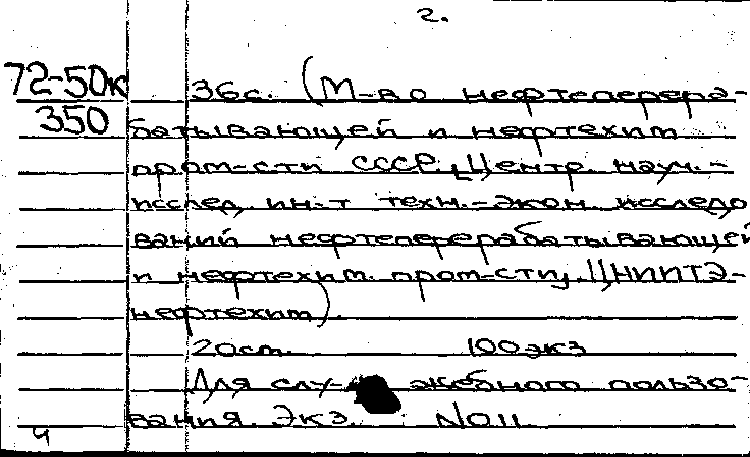 2.
72-50к 36с. (М-во нефтеперера-
350 батывающей и нефтехим
пром-сти СССР. Центр. науч.-
исслед. ин-т техн.-экон. исследо
ваний нефтеперерабатывающей
и нефтехим. пром-сти. ЦНИИТЭ-
нефтехим).
20ст. 100экз
Для слу- жебного пользо-
вания. Экз. №011
4